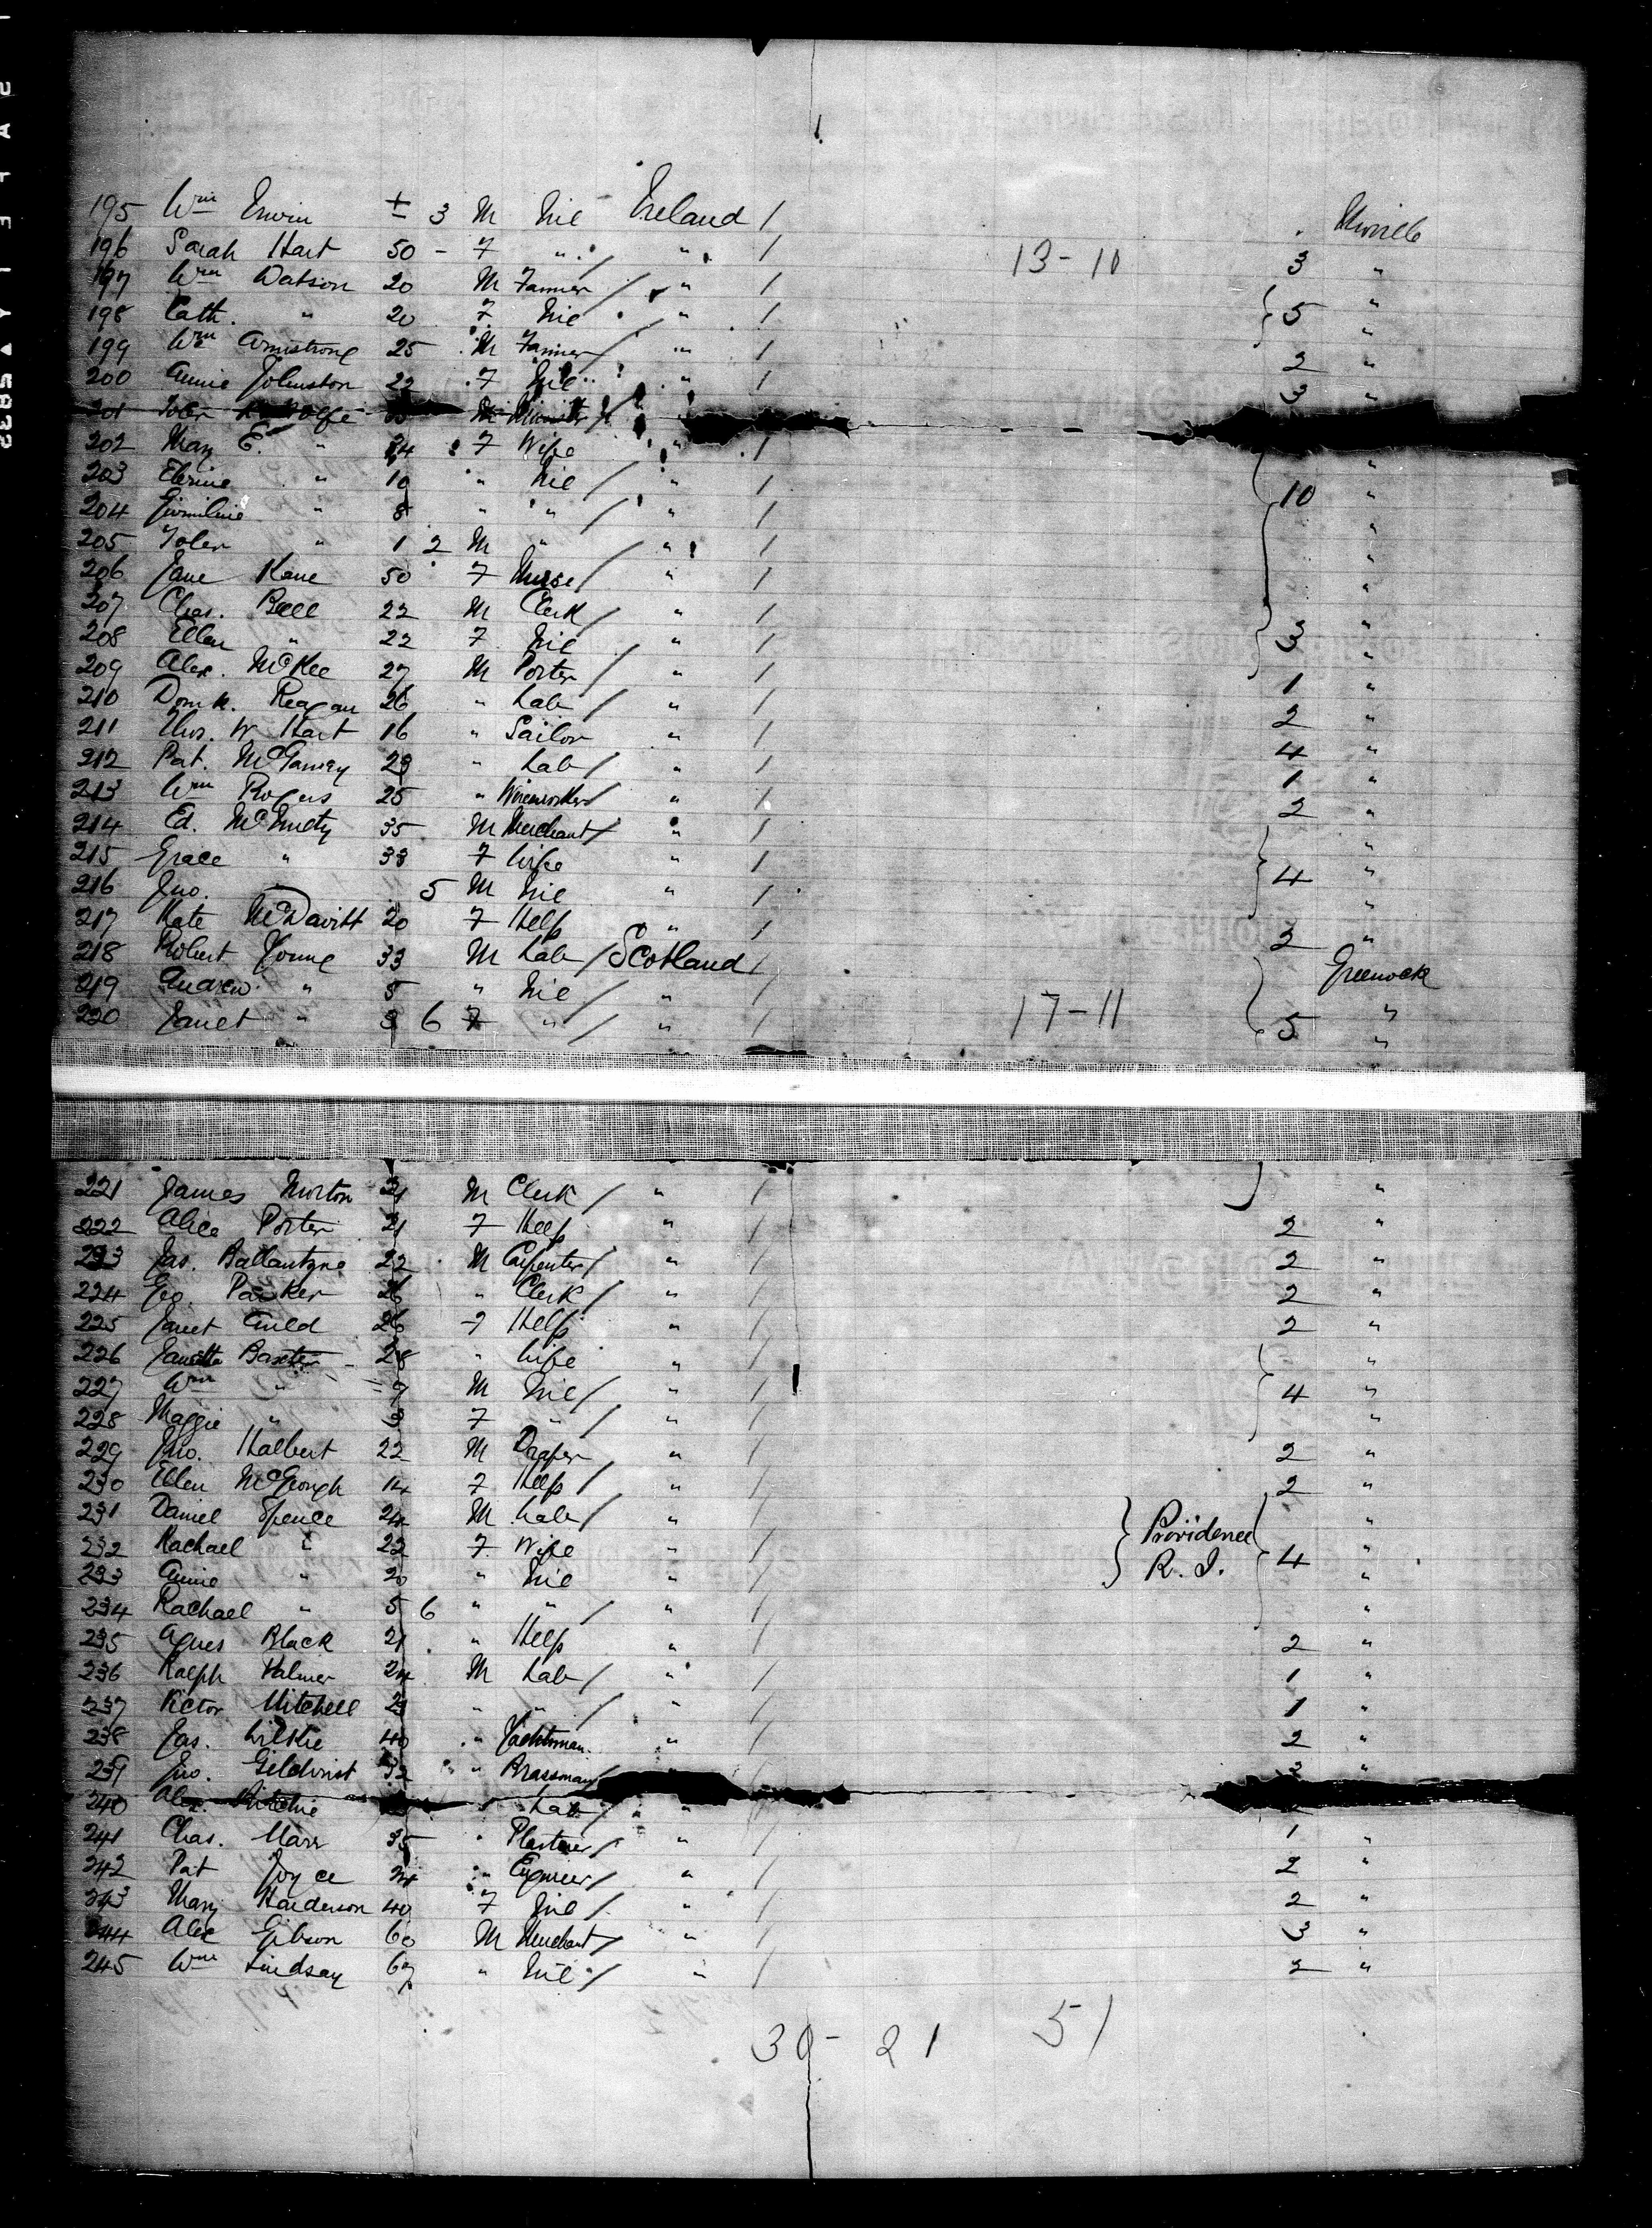 195 Wm Erwin 3 M Nil Ireland / Moville
196 Sarah Hart 50 - F " / " / 13-10 3 "
197 Wm Watson 20 M Farmer / " / "
198 Cath. " 20 F Nil " / 5 "
199 Wm Armstrong 25 M Farmer / " / 2 "
200 Annie Johnston 22 F Nil " / 3 "
201 Toler M
202 Mary E. " 34 F Wife " / "
203 " 10 " Nil / " / 10 "
204 " 8 " " / " / "
205 Toler " 1 2 M " / " / "
206 Jane Kane 50 F Nurse / " / "
207 Chas. Bell 22 M Clerk / " / "
208 Ellen " 22 F Nil " / 3 "
209 Alex. McKee 27 M Porter / " / 1 "
210 Domk. Reagan 26 " Lab / " / 2 "
211 Thos. W Hart 16 " Sailor " / 4 "
212 Pat. 23 " Lab / " / 1 "
213 Wm Rogers 25 " Wireworker / " / 2 "
214 Ed. 35 M Merchant / " / "
215 Grace " 33 F Wife " / 4 "
216 Jno. " 5 M Nil " / "
217 Kate McDavitt 20 F Help " / 2 "
218 Robert Young 33 M Lab / Scotland / Greenock
219 Andrew " 5 " Nil / " / "
220 Janet " 3 6 F " / " / 17-11 5 "
221 James Morton 21 M Clerk / " / "
222 Alice Porter 21 F Help " / 2 "
223 Jas. Ballantyne 22 M Carpenter / " / 2 "
224 Geo. Parker 26 " Clerk / " / 2 "
225 Janet Auld 26 F Help " / 2 "
226 Baxter 28 " Wife " / "
227 Wm " 7 M Nil / " / 4 "
228 Maggie " 3 F " / " / "
229 Jno. Halbert 22 M Draper " / 2 "
230 Ellen McGeough 14 F Help / " / 2 "
231 Daniel Spence 24 M Lab / " / Providence "
232 Rachael " 22 F Wife " / R. I. 4 "
233 Annie " 20 " Nil " / "
234 Rachael " 5 6 " " / " / "
235 Agnes Black 21 " Help " / 2 "
236 Ralph Palmer 24 M Lab / " / 1 "
237 Victor Mitchell 23 " " / " / 1 "
238 Jas. Wilkie 40 " Yachtsman " / 2 "
239 Jno. Gilchrist 32 " Brassman / 3 "
240 Alex. Ritchie " Lab / " /
241 Chas. Marr 35 " Plasterer / " / 1 "
242 Pat Joyce 34 " Engineer / " / 2 "
243 Mary Henderson 40 F Nil / " / 2 "
244 Alex Gibson 60 M Merchant / " / 3 "
245 Wm Lindsay 67 " Nil / " / 2 "
30 - 21 51